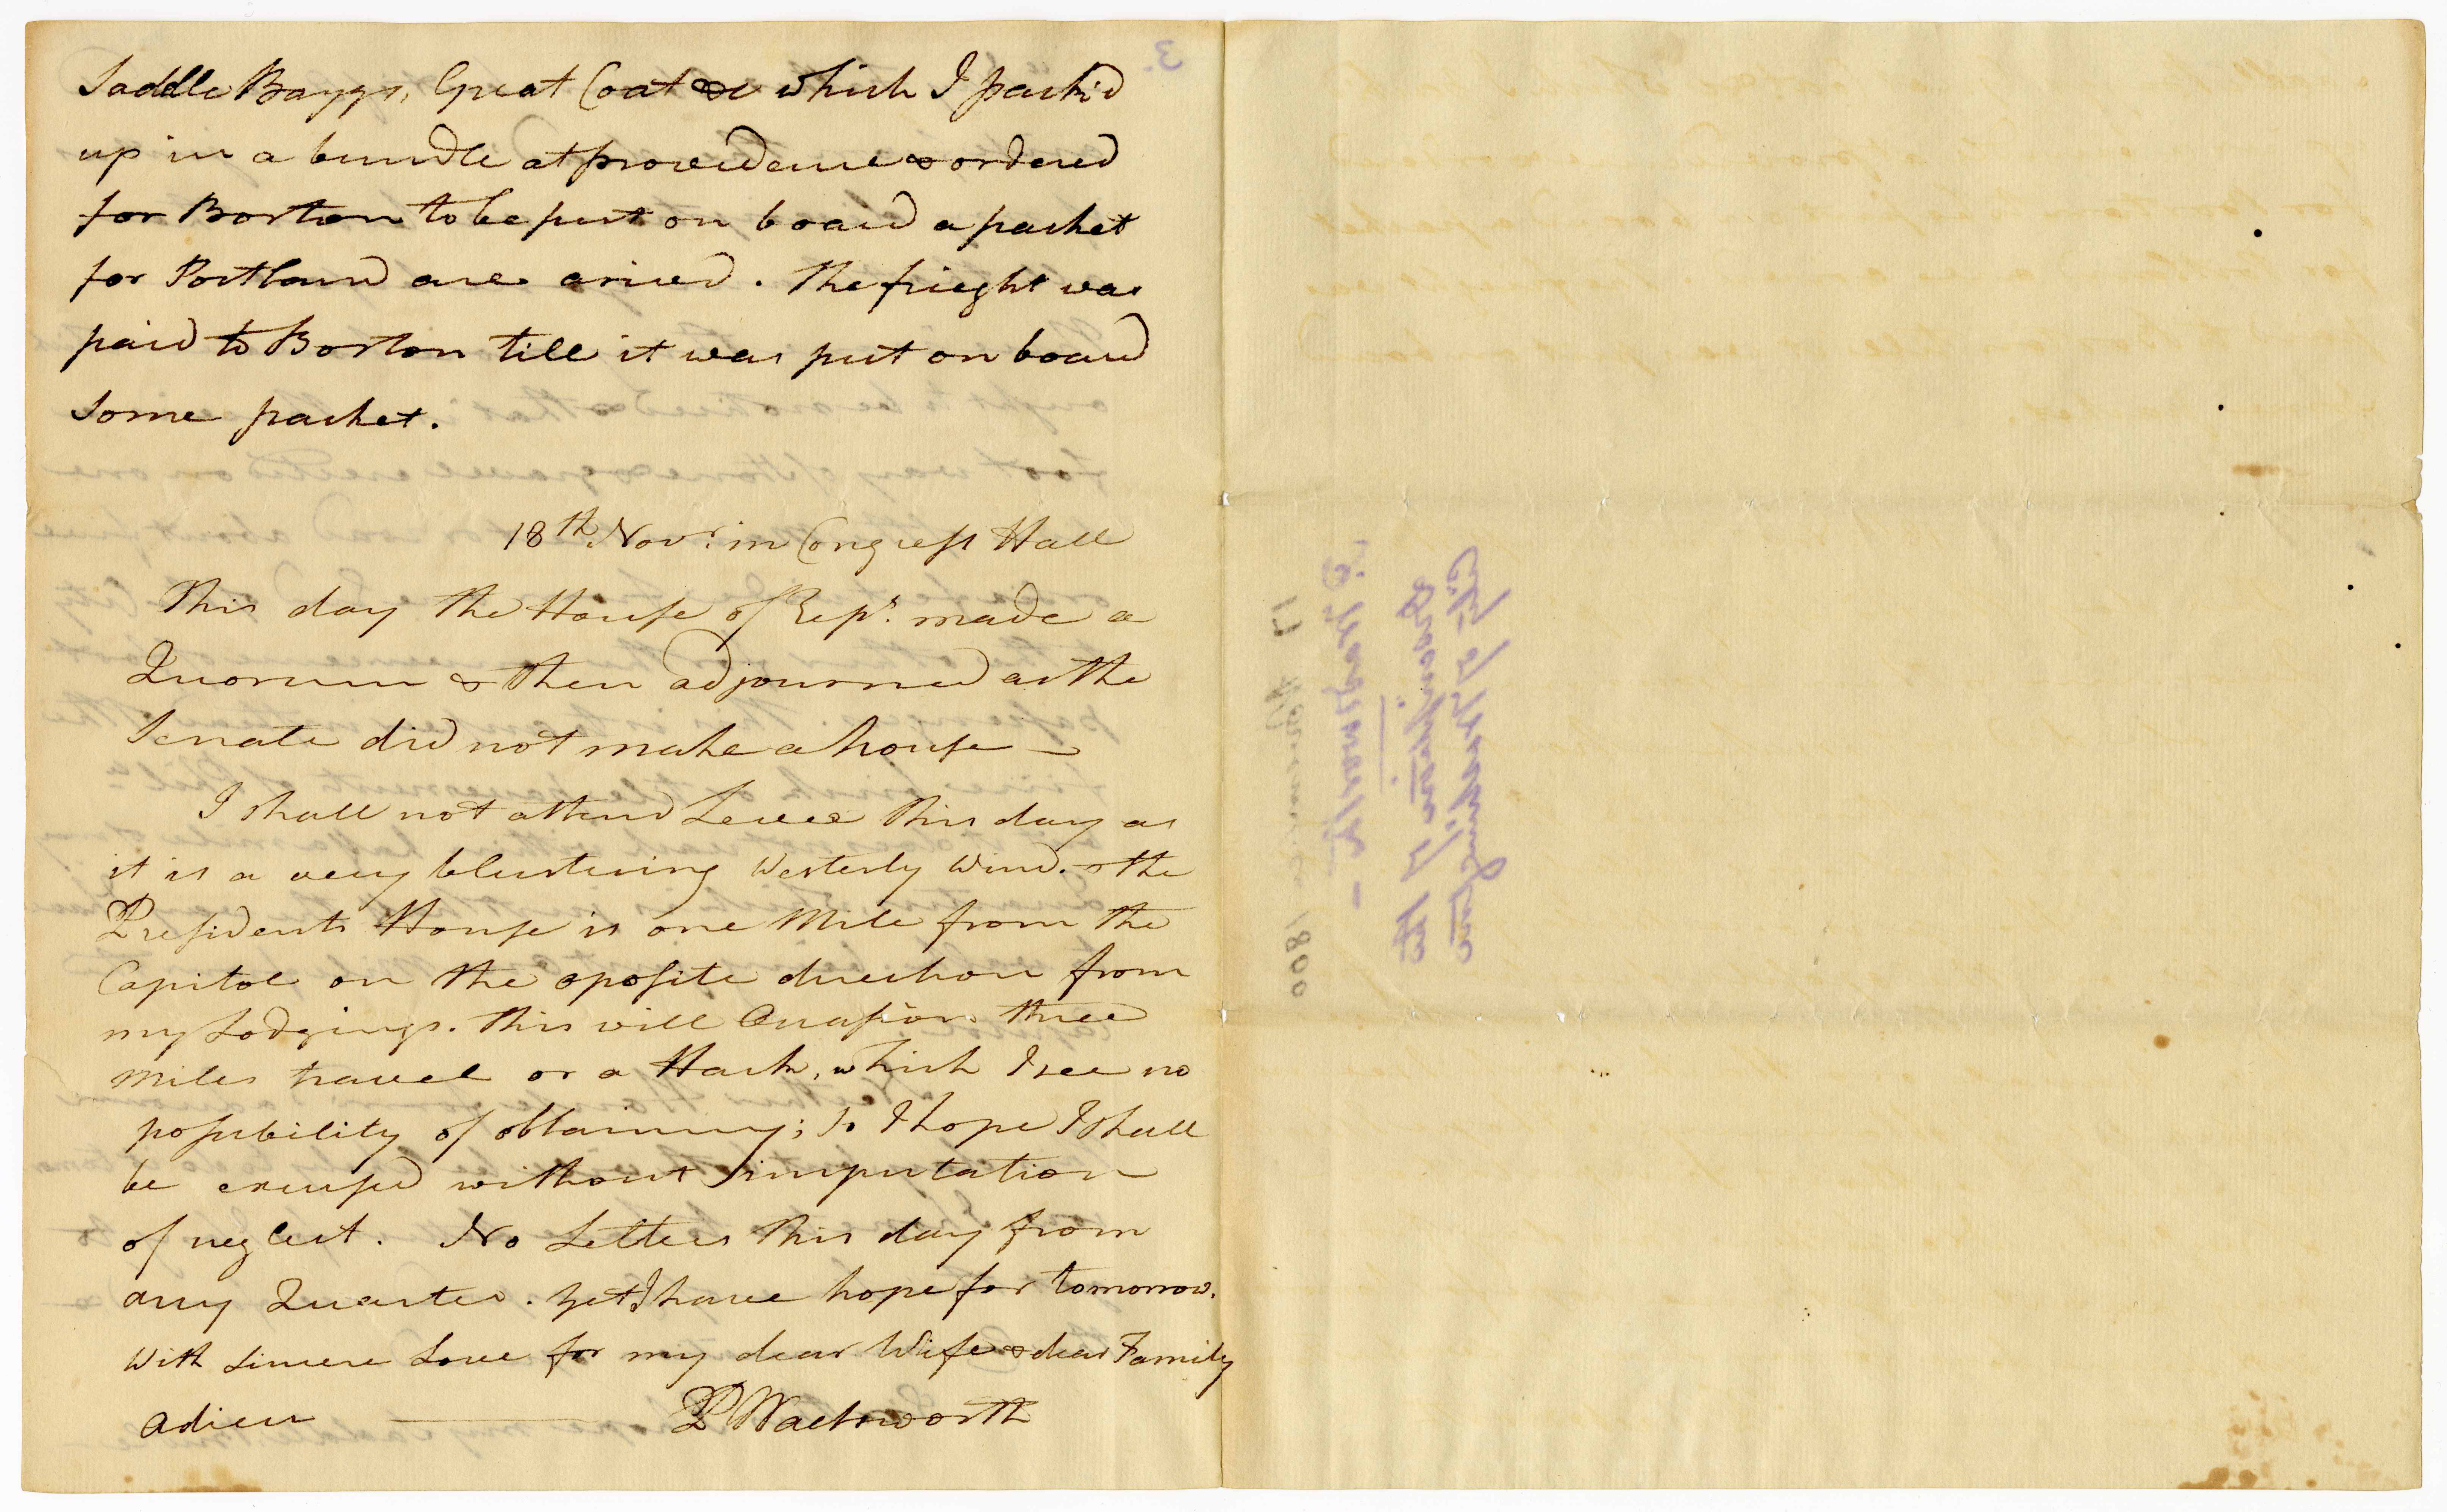 Saddle Baggs, Great Coat &c which I pack'd
up in a bundle at providence & ordered
for Boston to be put on board a packet
for Portland are arived. The frieght was
paid to Boston till it was put on board
some packet.
18th Novr. in Congress Hall
This day the House of Reps. made a
Quorum & then adjourned as the
Senate did not make a house —
I shall not attend Levee this day as
it is a very blustering Westerly Wind. & the
Presidents House is one Mile from the
Capitol on the oposite direction from
my Lodgings. This will Occasion three
miles travel or a Hack, which I see no
possibility of obtaining; so I hope I shall
be excused without imputation
of neglect. No Letters this day from
any Quarter. yet I have hope for tomorrow.
With sincere Love for my dear Wife & dear Family
Adieu ——— P Wadsworth
3.
1800